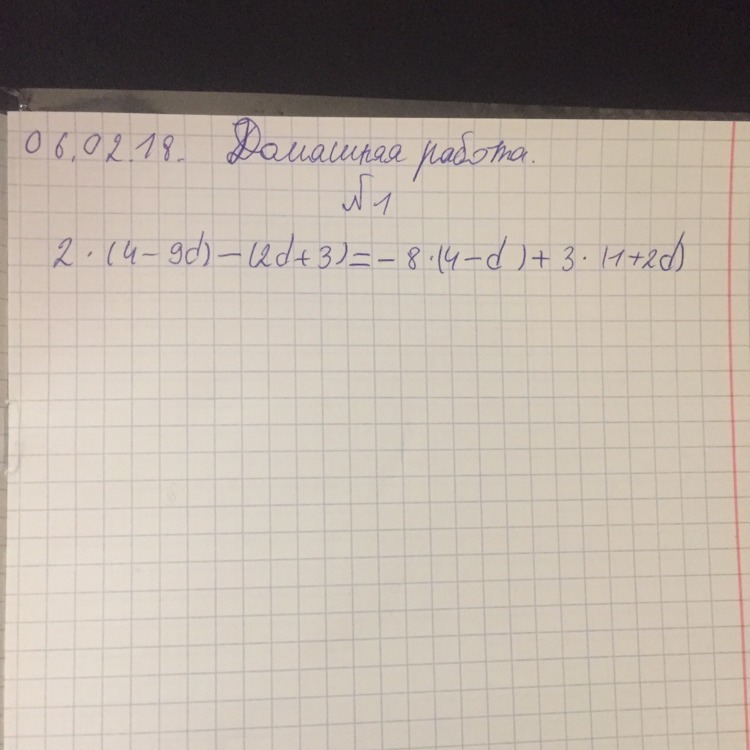 06.02.18. Домашняя работа.
№1
2·(4-9d)-(2d+3)=-8·(4-d)+3·(1+2d)